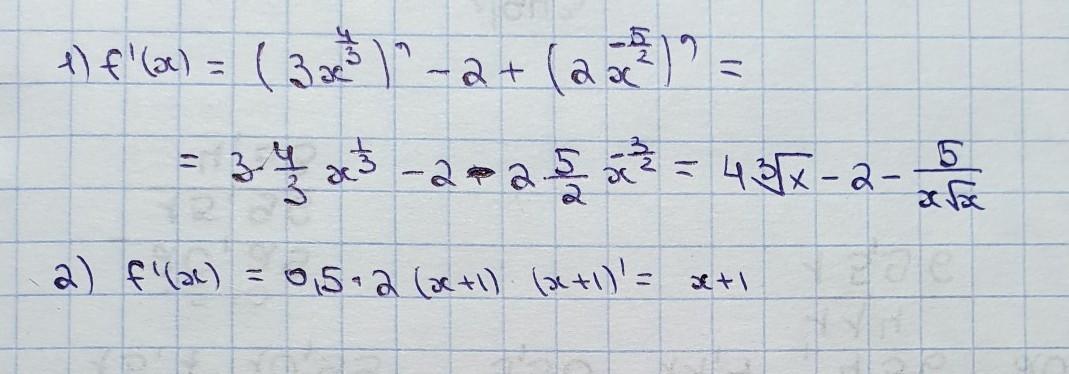 1) f'(x) = (3x^{4/3})' - 2 + (2x^{-5/2})' =
= 3·4/3 x^{1/3} - 2 - 2·5/2 x^{-3/2} = 4∛x - 2 - 5/(x√x)
2) f'(x) = 0,5·2 (x+1) · (x+1)' = x+1